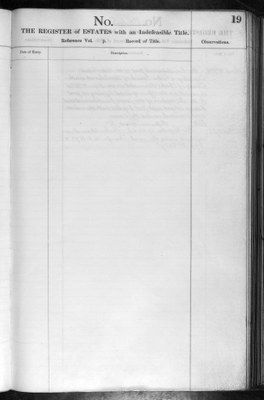 No. 19
THE REGISTER of ESTATES with an Indefensible Title.
Reference Vol. p. Record of Title. Observations.
Date of Entry. Description.